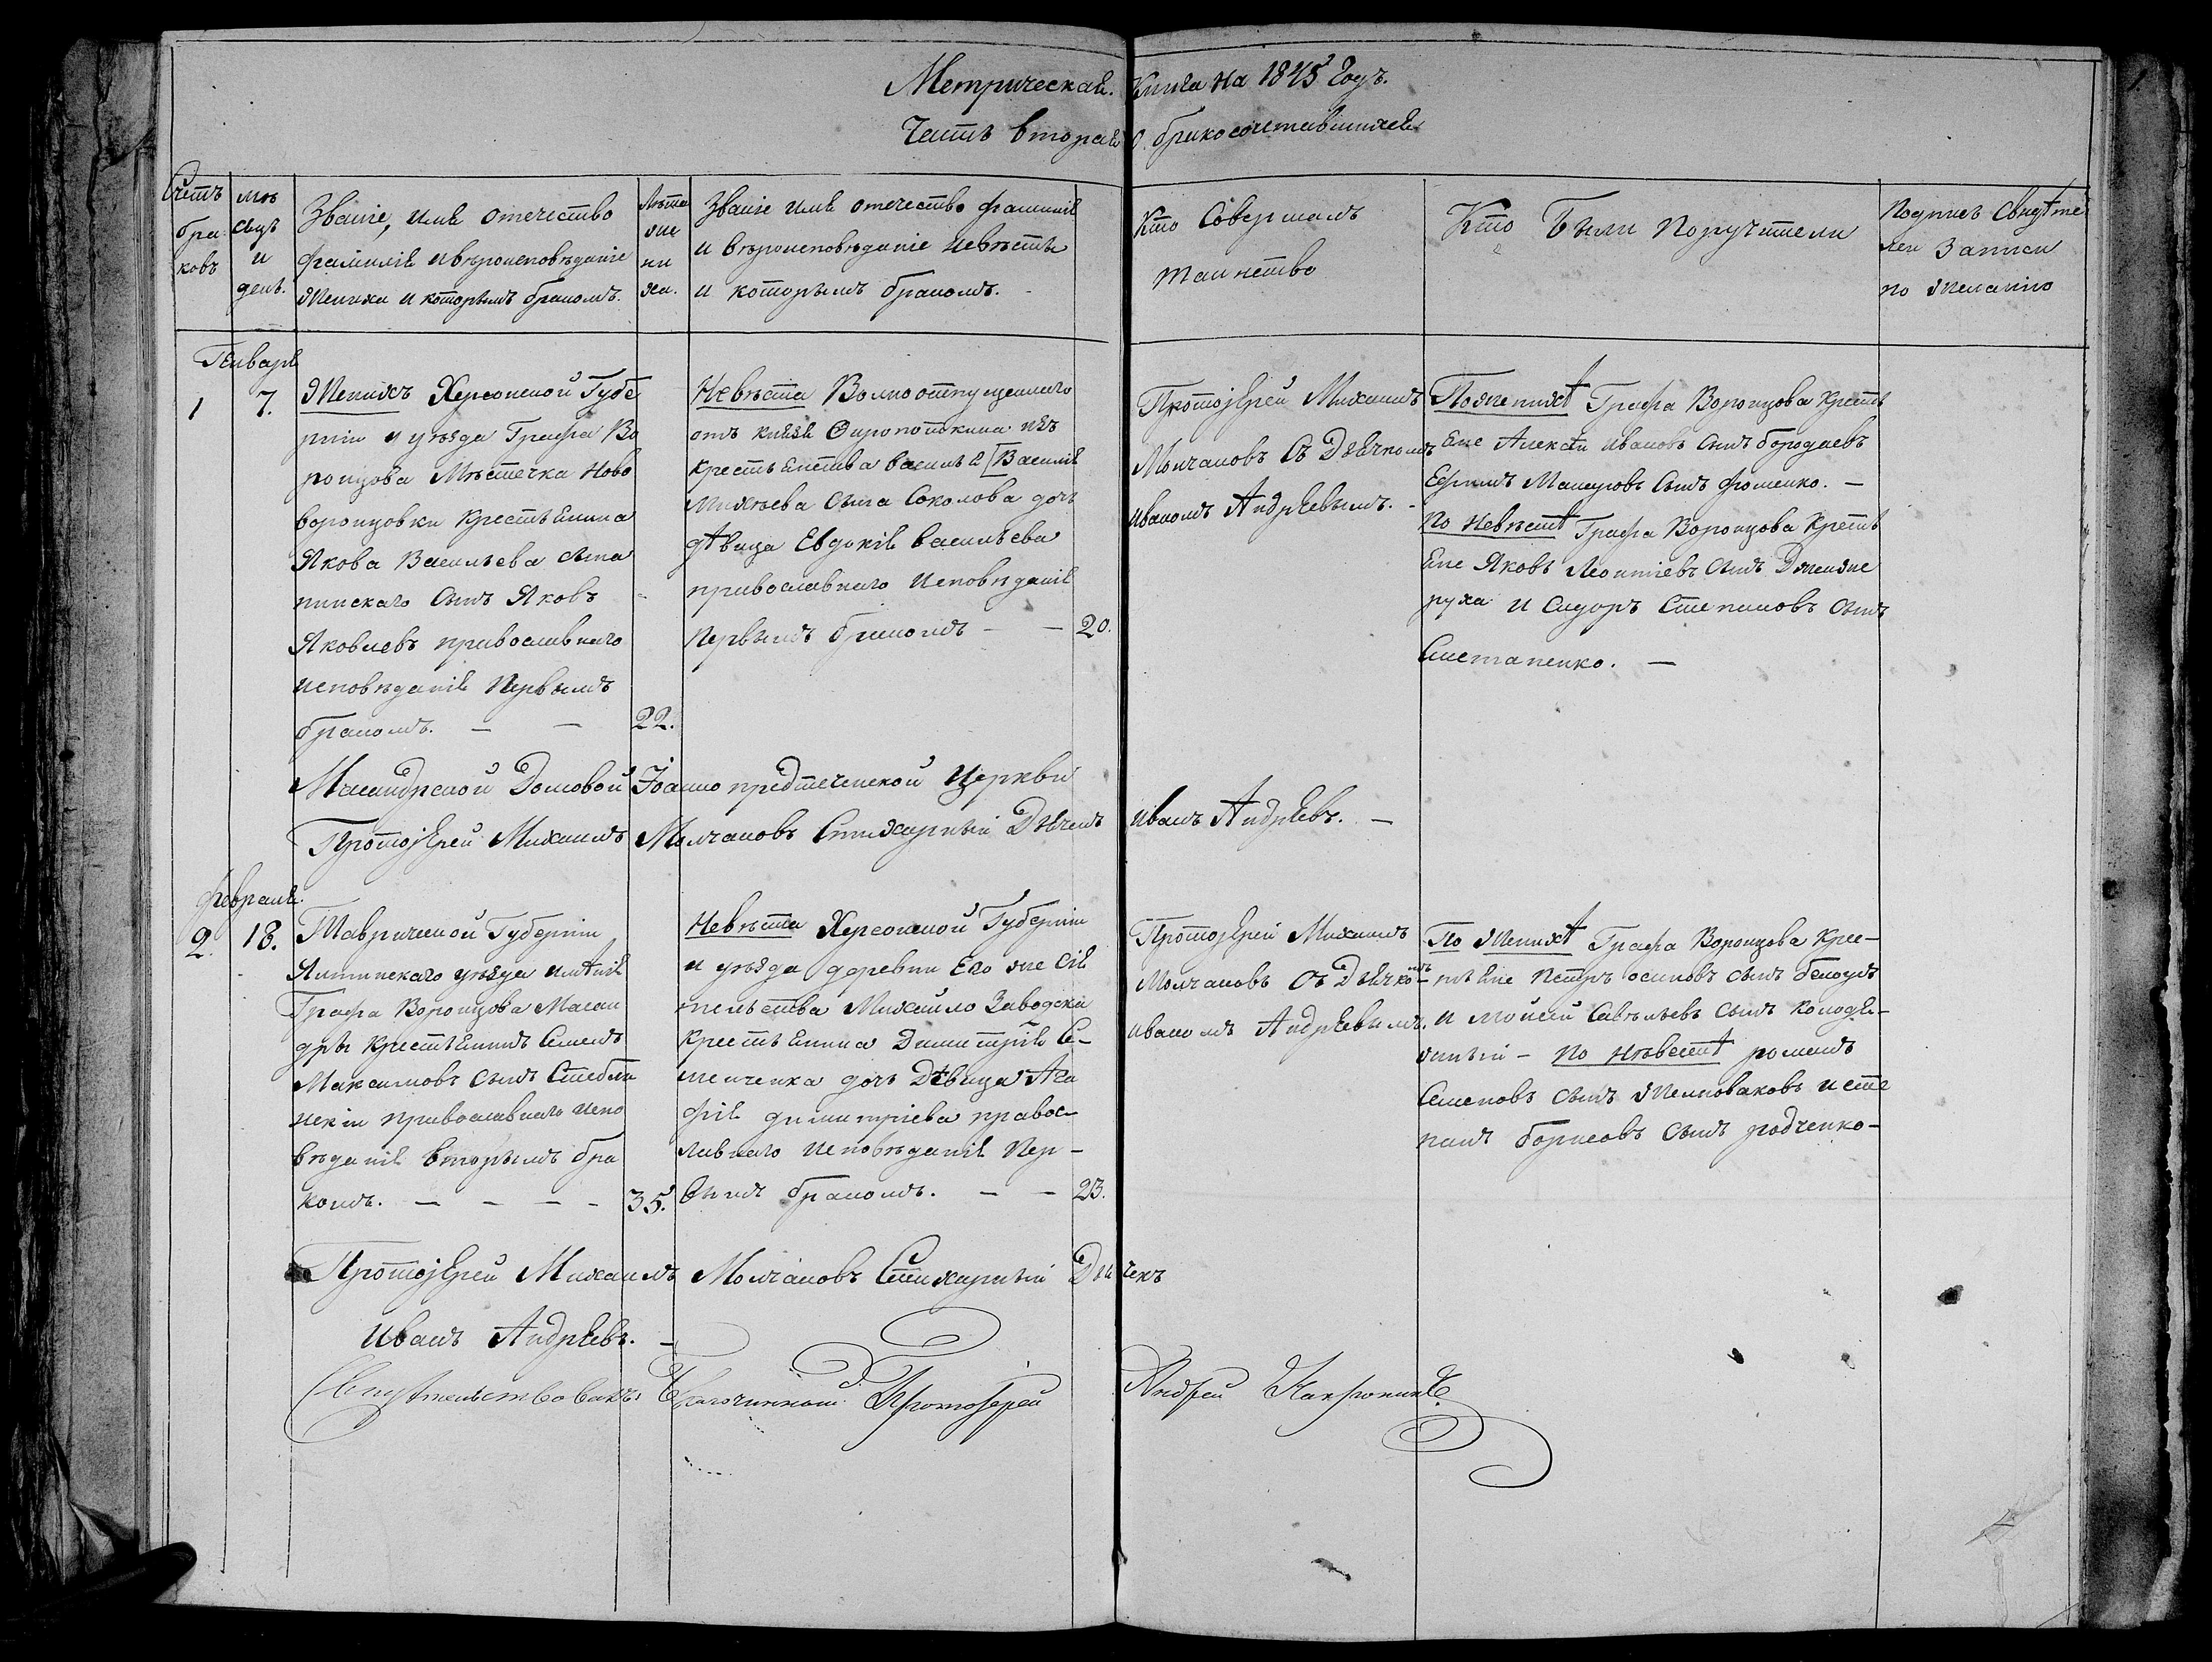 Метрическая Книга на 1845 Годъ.
Часть вторая О бракосочетавшихся
Счетъ браковъ
мѣсяцъ и день.
Званіе, имя отечество
фамилія и вѣроисповѣданіе
жениха и которымъ бракомъ.
Лѣта жениха.
Званіе имя отечество фамилія
и вѣроисповѣданіе невѣсты
и которымъ бракомъ.
Кто Совершалъ
таинство
Кто Были Поручители
Подпись свидѣте
лей Записи
по желанію
Генваря
1 7.
Женихъ Херсонской Губе
рніи и уѣзда Графа Во
ронцова Мѣстечка Ново
воронцовки Крестьянина
Якова Васильева сына
пинскаго сынъ Яковъ
Яковлевъ православнаго
исповѣданія Первымъ
бракомъ. — — 22.
Невѣста Вольноотпущеннаго
отъ князя
крестьянства Василья
Михѣева сына Соколова дочь
дѣвица Евдокія Васильева
православнаго исповѣданія
Первымъ бракомъ — — 20.
Протоіерей Михаилъ
Молчановъ Съ Дьячкомъ
Иваномъ Андреевымъ. -
По женихѣ Графа Воронцова крестья
не Алексѣй Ивановъ сынъ Бородаевъ
Ефимъ сынъ Фоменко. —
По Невѣстѣ Графа Воронцова Крестья
не Яковъ Леонтіевъ сынъ Дженже
руха и Сидоръ Степановъ сынъ
Сметаненко. —
Масандрской Домовой Іоанно предтеченской Церкви
Протоіерей Михаилъ Молчановъ Стихарный Дьячекъ Иванъ Андреевъ. —
Февраля.
2. 18.
Таврической Губерніи
Ялтинскаго уѣзда имѣнія
Графа Воронцова Масан
дры крестьянинъ Семенъ
Максимовъ сынъ Стебли
нскій православнаго испо
вѣданія вторымъ бра
комъ. — — — - 35.
Невѣста Херсонской Губерніи
и уѣзда деревни Его же Сія
тельства Михайло Заводска
крестьянина Димитрія Се-
менченка дочь Дѣвица Ага
фія Димитріева правос
лавнаго исповѣданія Пер-
вымъ бракомъ. — — 23.
Протоіерей Михаилъ
Молчановъ Съ Дьячкомъ
Иваномъ Андреевымъ.
По Женихѣ Графа Воронцова Крес-
тьяне Петръ Осиповъ сынъ Белоусъ
и Мойсей Савельевъ сынъ Колодя-
жный - По Нѣвестѣ Романъ
Семеновъ сынъ Желноваковъ и Сте
панъ Борисовъ сынъ Родченко-
Протоіерей Михаилъ Молчановъ Стихарный Дьячекъ
Иванъ Андреевъ. —
Свидѣтельствовалъ Благочинный Протоіерей Андрей